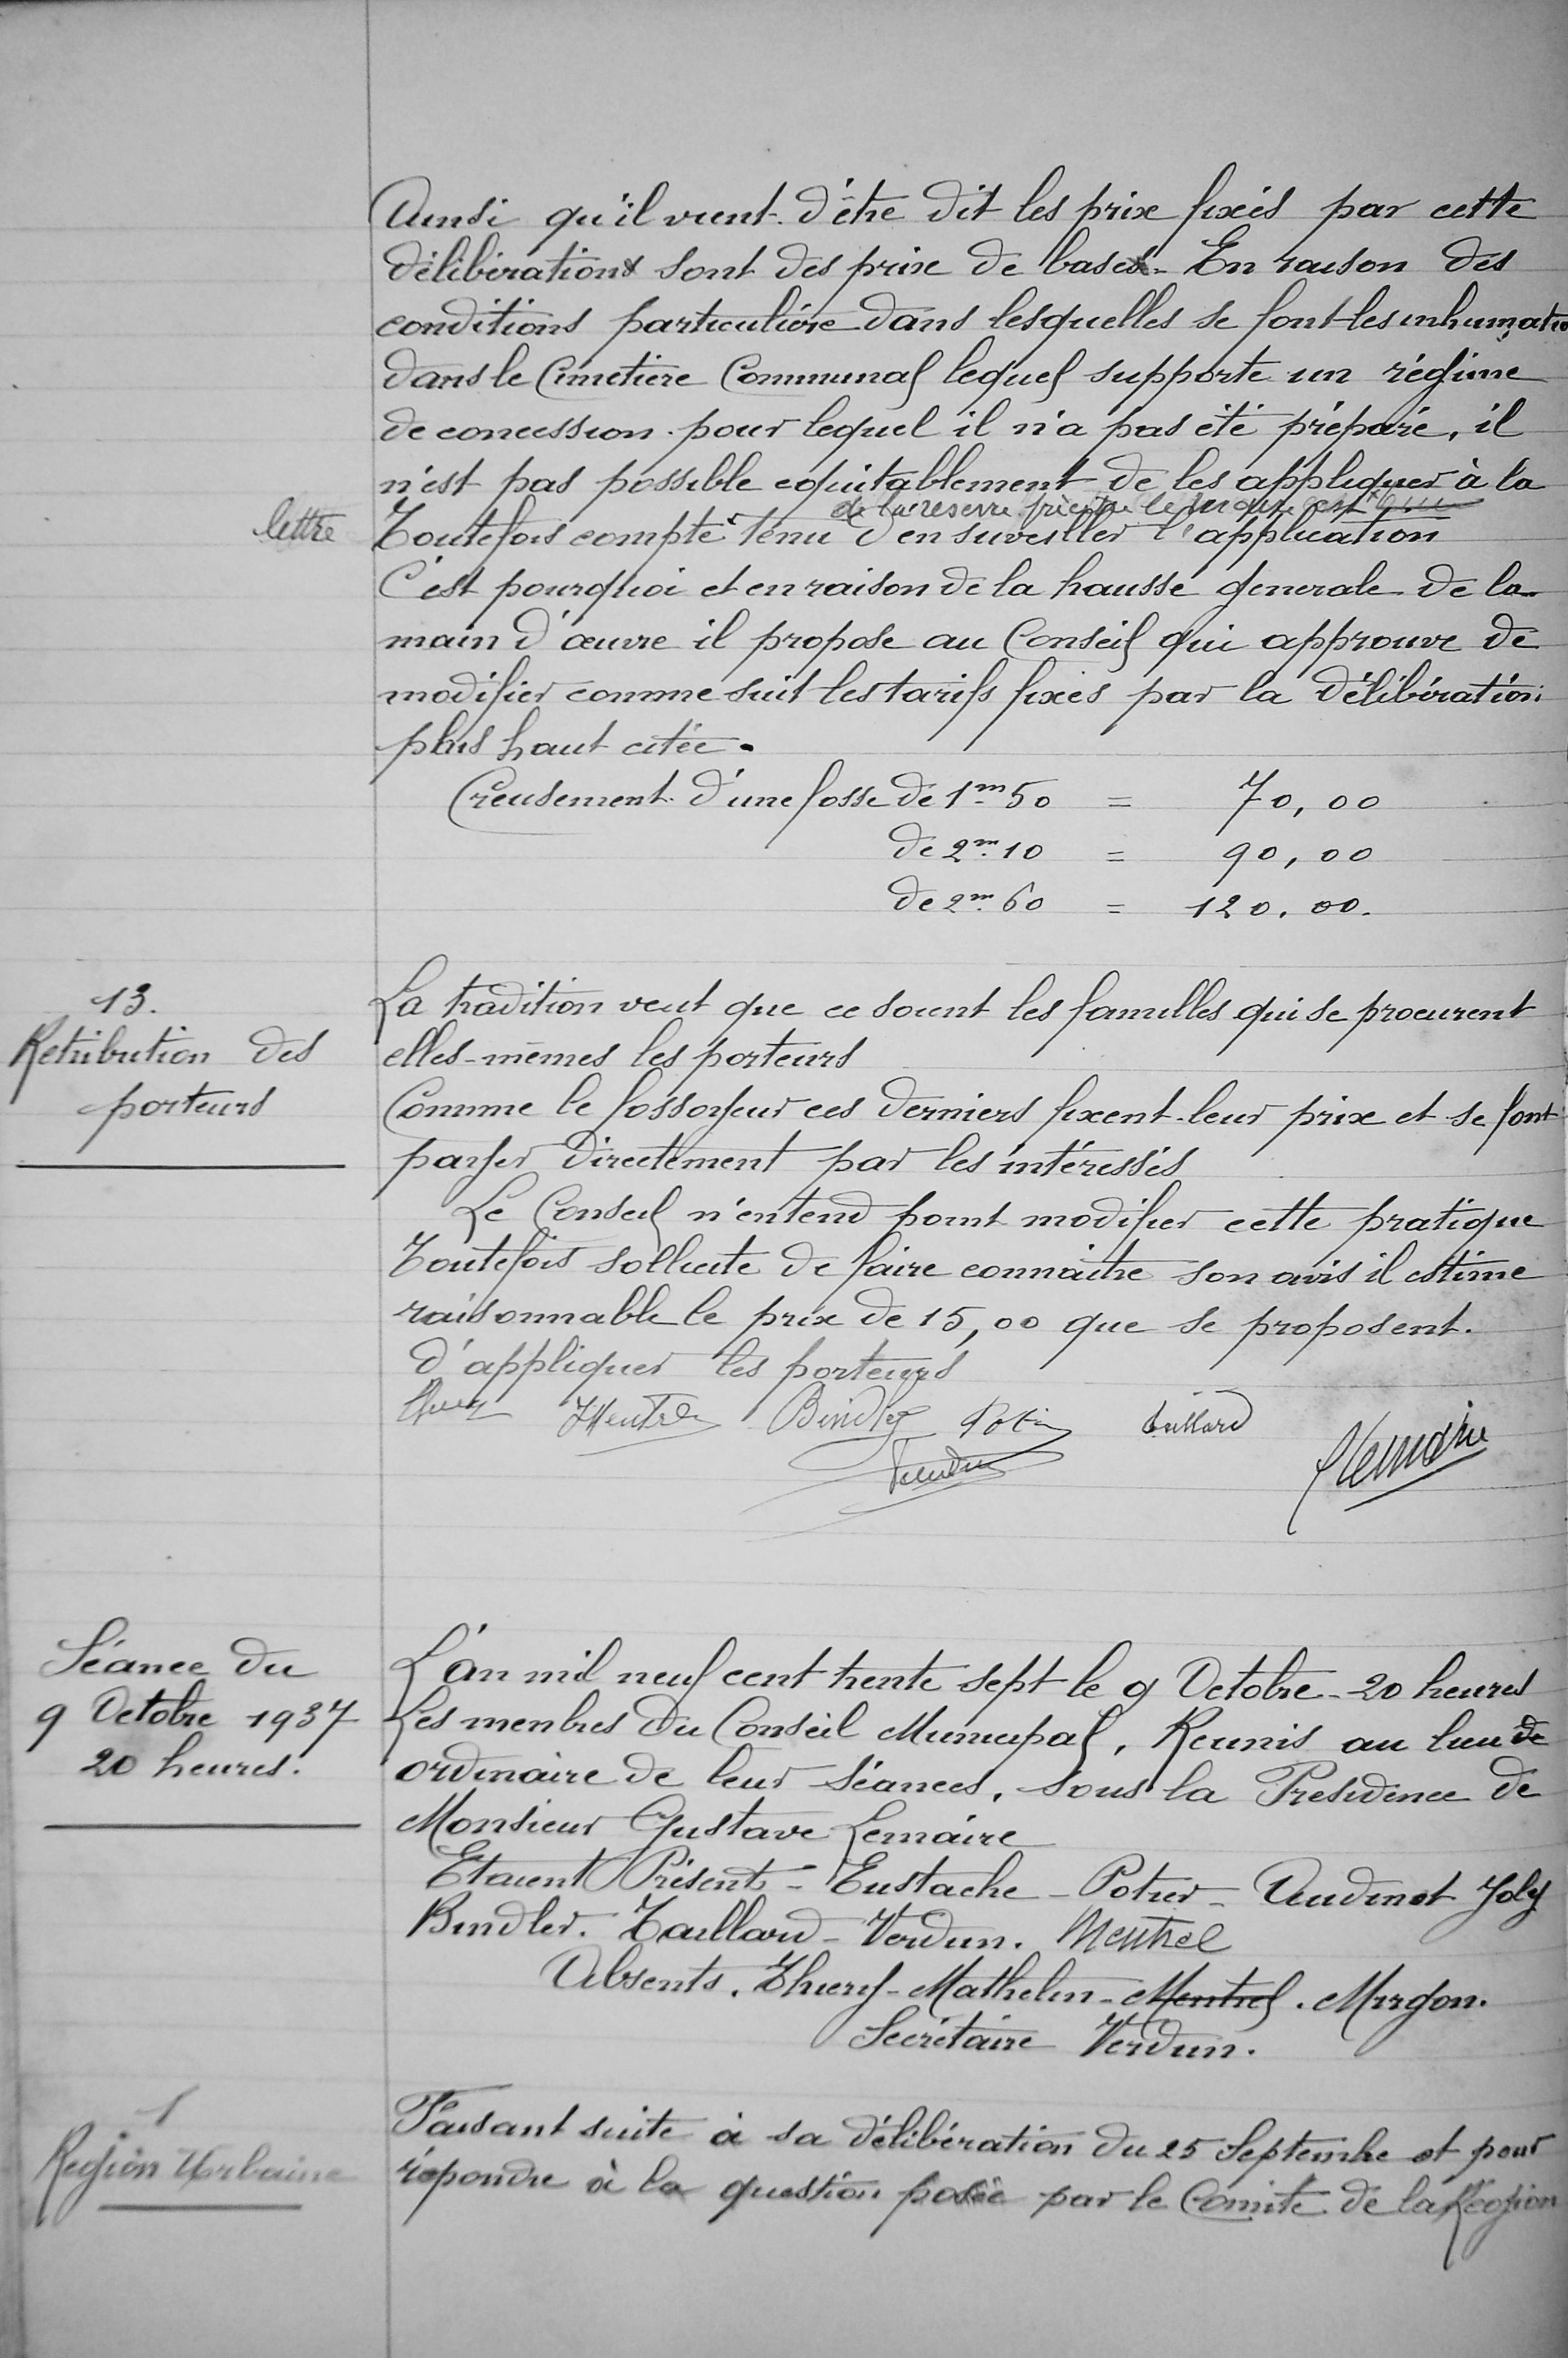 Ainsi qu'il vient d'être dit les prix fixés par cette
délibération sont des prix de base. En raison des
conditions particulière dans lesquelles se font les inhumatio
dans le Cimetière Communal lequel supporte un régime
de concession pour lequel il n'a pas été préparé, il
n'est pas possible equitablement de les appliquer à la
de la reserve
lettre Toutefois compte tenu d'en suveiller l'application
C'est pourquoi et en raison de la hausse generale de la
main d'œuvre il propose au Conseil qui approuve de
modifier comme suit les tarifs fixés par la délibération
plus haut citée.
Creusement d'une fosse de 1m50 = 70,00
de 2m.10 = 90,00
de 2m.60 = 120.00.
13.
Retribution des
porteurs
La tradition veut que ce soient les familles qui se procurent
elles-mêmes les porteurs
Comme le fossoyeur ces derniers fixent leur prix et se font
payer directement par les intéressés
Le Conseil n'entend point modifier cette pratique
Toutefois sollicité de faire connaitre son avis il estime
raisonnable le prix de 15,00 que se proposent.
d'appliquer les porteurs
Bindler Taillard
Verdun
Lemaire
Séance du
9 Octobre 1937
20 heures.
L'an mil neuf cent trente sept le 9 Octobre 20 heures
Les menbres du Conseil Municipal, Reunis au lieu de
ordinaire de leur séances, sous la Presidence de
Monsieur Gustave Lemaire
Etaient Présent - Eustache - Potier - Audinot Joly
Bindler. Taillard - Verdun. Mentrel
Absents. Thiery - Mathelin - Mentrel. Margon.
Secrétaire Verdun.
1
Region Urbaine
Faisant suite à sa délibération du 25 Septembre et pour
répondre à la question posée par le Comité de la Région